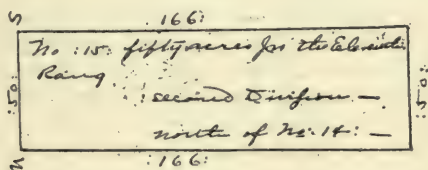 S
:166:
No :15: fifty acres In the Eleventh
Rang
:50:
:50:
: second Division —
north of No: 14: —
N
:166: